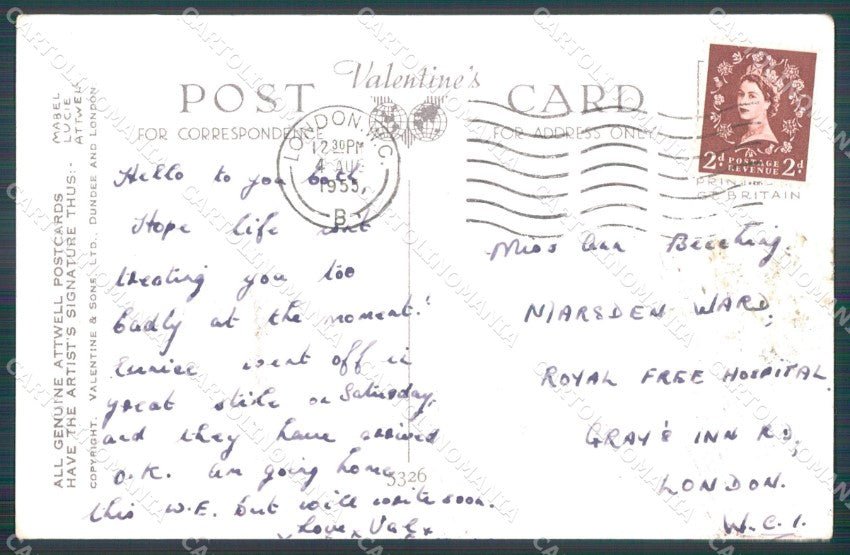 Valentine's
POST CARD
FOR CORRESPONDENCE
FOR ADDRESS ONLY
LONDON. W.C.
12 30PM
4 AUG
1955
B
2d POSTAGE REVENUE 2d
PRIN
GT BRITAIN
ALL GENUINE ATTWELL POSTCARDS
HAVE THE ARTIST'S SIGNATURE THUS:- MABEL LUCIE ATTWELL
COPYRIGHT. VALENTINE & SONS, LTD., DUNDEE AND LONDON
Hello to you both
Hope life isnt
treating you too
badly at the moment!
Eunice went off in
great style on Saturday,
and they have arrived
O.K. Am going home
this W.E. but will write soon.
Love, Val x
5326
Miss Ann Beeching.
MARSDEN WARD,
ROYAL FREE HOSPITAL
GRAY'S INN RD,
LONDON.
W.C.1.
CARTOLINOMANIA